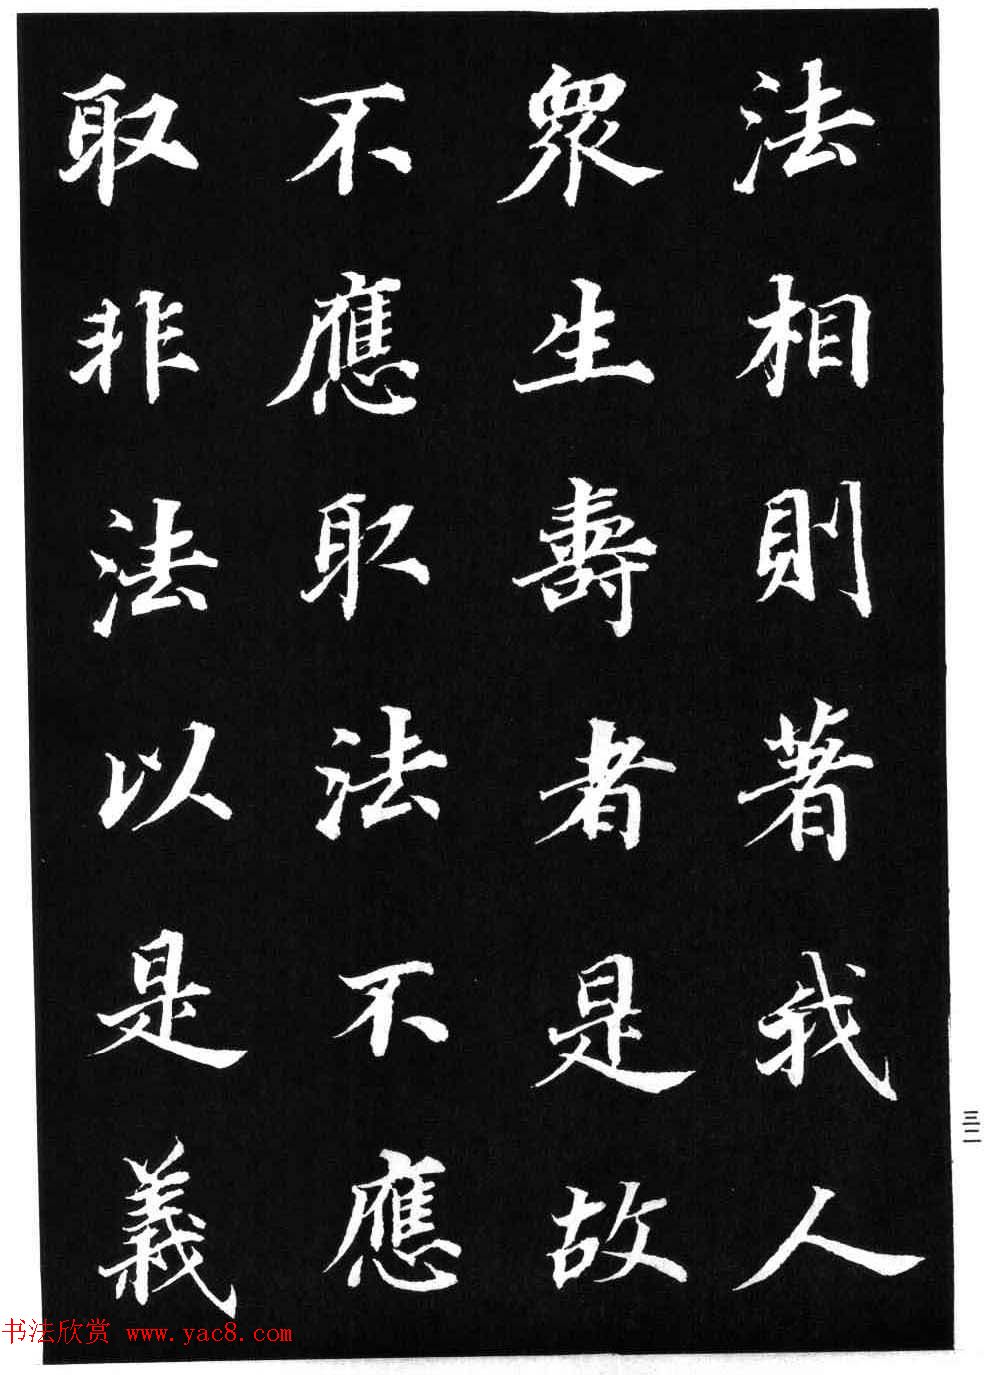 法相則著我人
眾生壽者是故
不應取法不應
取非法以是義
三二
书法欣赏 www.yac8.com